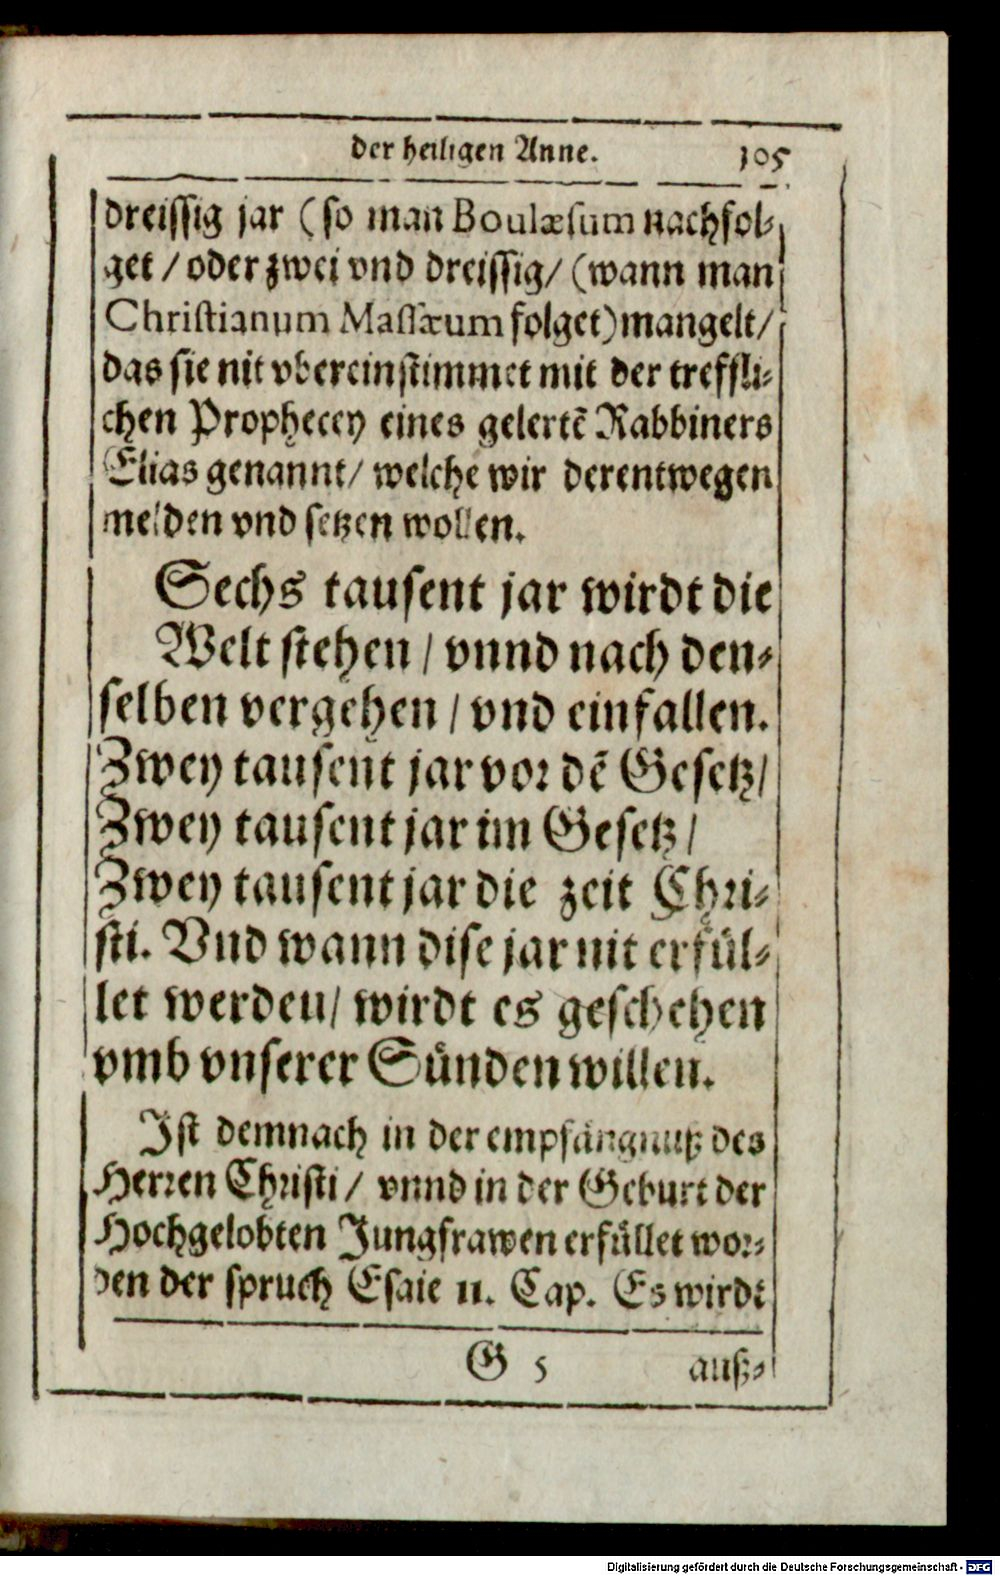 der heiligen Anne. 105
dreissig jar (so man Boulæsum nachfol⸗
get / oder zwei vnd dreissig / (wann man
Christianum Massæum folget) mangelt /
das sie nit vbereinstimmet mit der treffli⸗
chen Prophecey eines gelertẽ Rabbiners
Elias genannt / welche wir derentwegen
melden vnd setzen wollen.
Sechs tausent jar wirdt die
Welt stehen / vnnd nach den⸗
selben vergehen / vnd einfallen.
Zwey tausent jar vor dẽ Gesetz /
Zwey tausent jar im Gesetz /
Zwey tausent jar die zeit Chri⸗
sti. Vnd wann dise jar nit erfül⸗
let werden / wirdt es geschehen
vmb vnserer Sünden willen.
Ist demnach in der empfängnuß des
Herren Christi / vnnd in der Geburt der
Hochgelobten Jungfrawen erfüllet wor⸗
den der spruch Esaie 11. Cap. Es wirdt
G 5 auß⸗
Digitalisierung gefördert durch die Deutsche Forschungsgemeinschaft - DFG